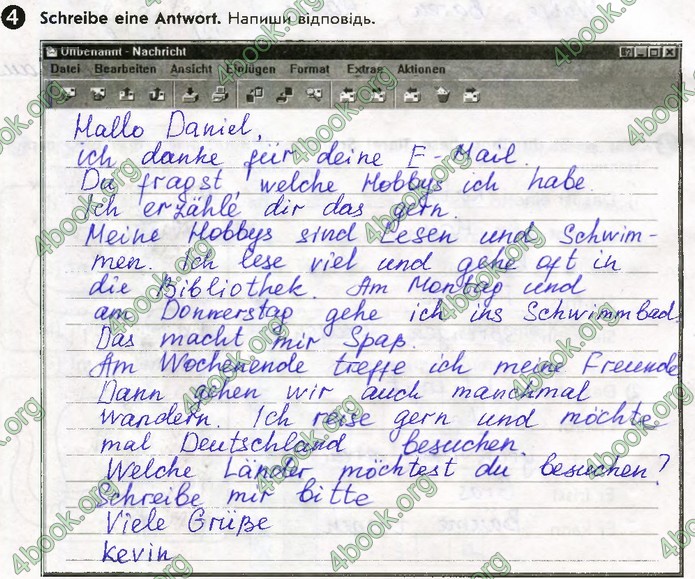 4 Schreibe eine Antwort. Напиши відповідь.
Unbenannt - Nachricht
Datei Bearbeiten Ansicht Einfügen Format Extras Aktionen
Hallo Daniel,
ich danke für deine E-Mail.
Du fragst, welche Hobbys ich habe.
Ich erzähle dir das gern.
Meine Hobbys sind Lesen und Schwim-
men. Ich lese viel und gehe oft in
die Bibliothek. Am Montag und
am Donnerstag gehe ich ins Schwimmbad.
Das macht mir Spaß.
Am Wochenende treffe ich meine Freunde
Dann gehen wir auch manchmal
wandern. Ich reise gern und möchte
mal Deutschland besuchen.
Welche Länder möchtest du besuchen?
Schreibe mir bitte
Viele Grüße
Kevin
4book.org